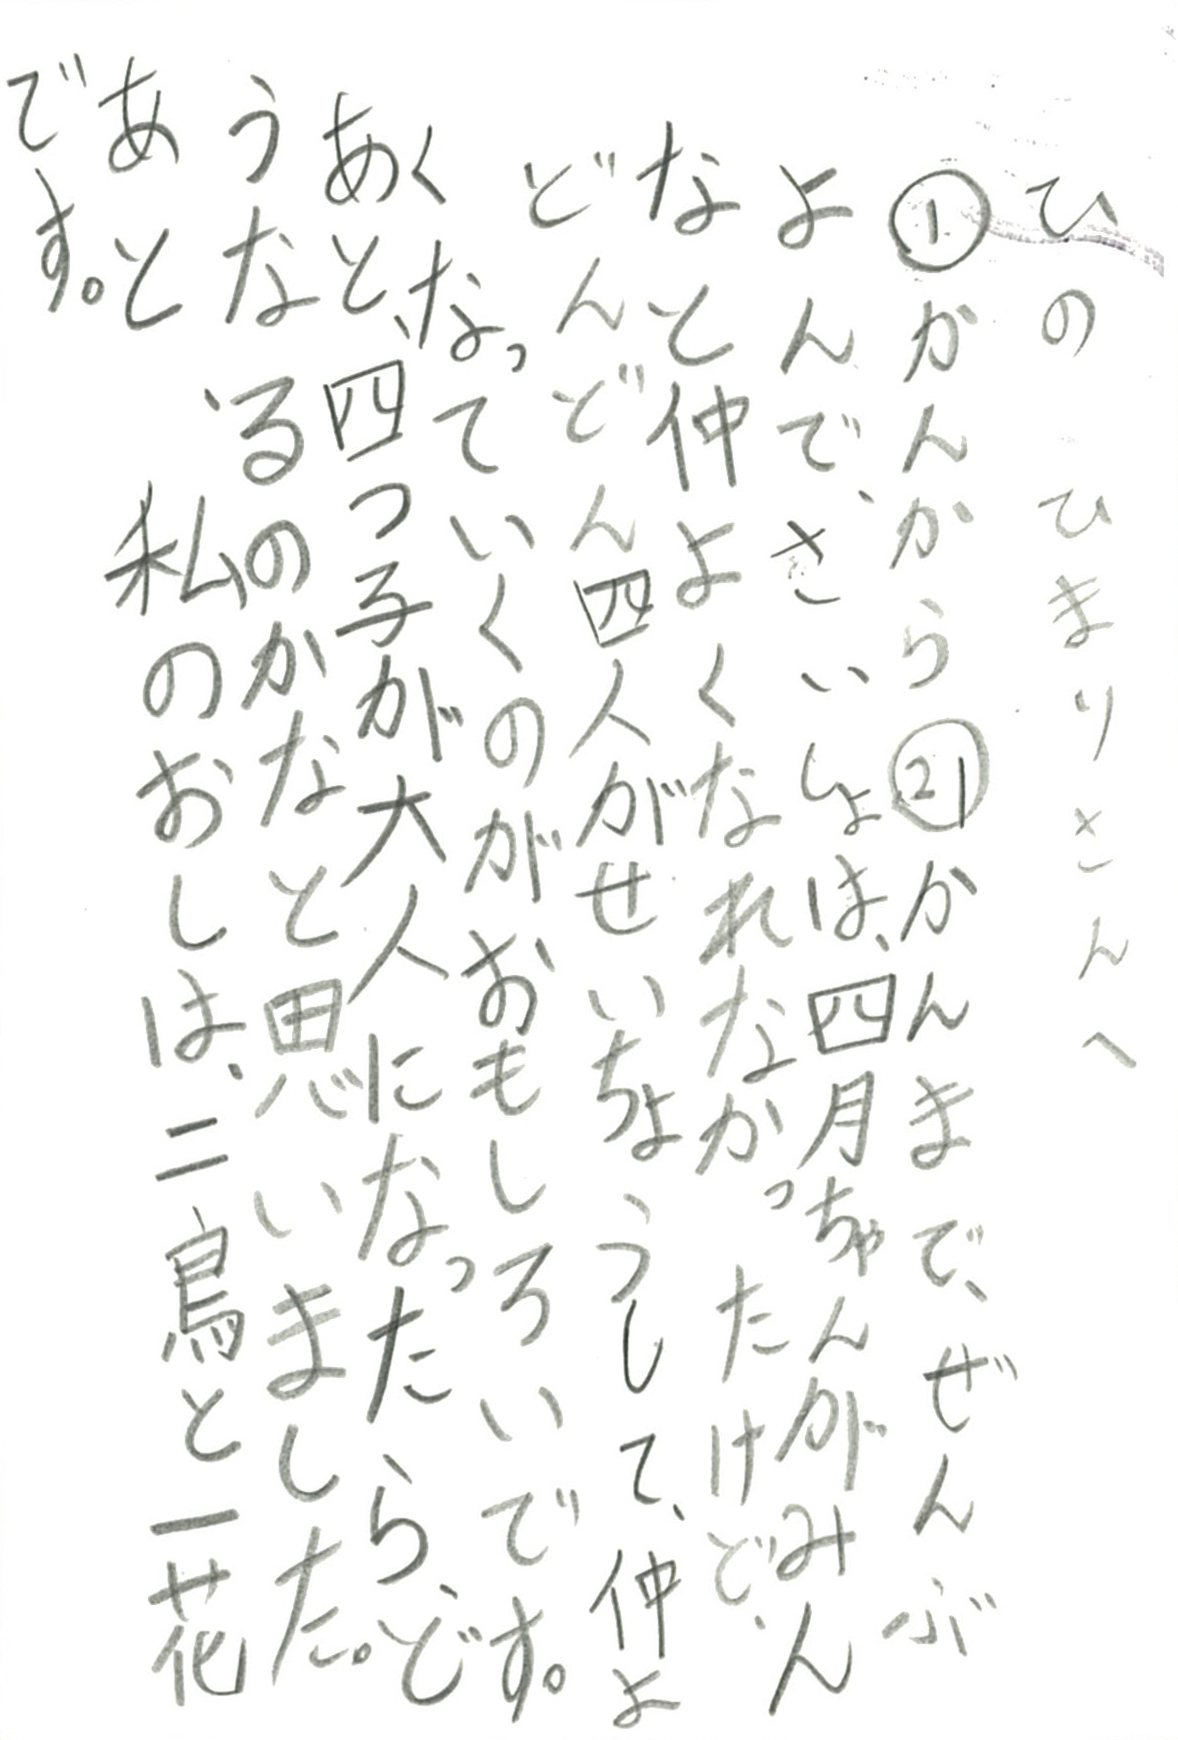 ひの ひまりさんへ
①かんから㉑かんまで、ぜんぶ
よんで、さいしょは、四月ちゃんがみん
なと仲よくなれなかったけど、
どんどん四人がせいちょうして、仲よ
くなっていくのがおもしろいです。
あと、四つ子が大人になったら、ど
うなるのかなと思いました。
あと、私のおしは、二鳥と一花
です。